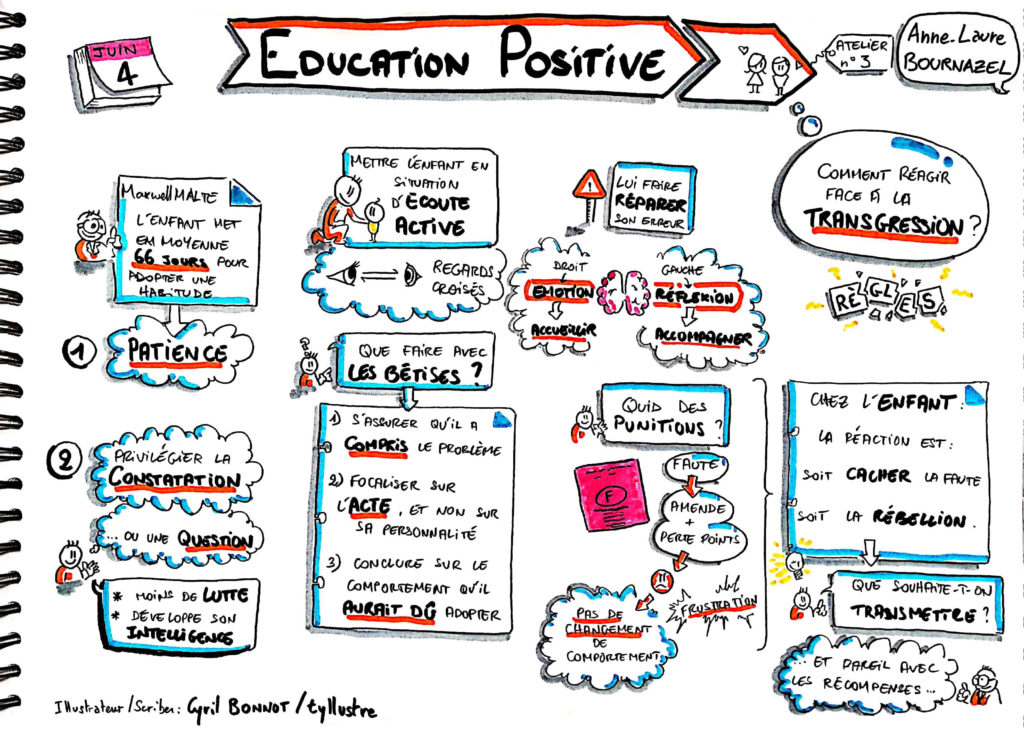 JUIN
4
EDUCATION POSITIVE
ATELIER
n°3
Anne-Laure
BOURNAZEL
COMMENT RÉAGIR
FACE À LA
TRANSGRESSION ?
RÈGLES
Maxwell MALTE
L'ENFANT MET
EM MOYENNE
66 JOURS POUR
ADOPTER UNE
HABITUDE
1
PATIENCE
2
PRIVILÉGIER LA
CONSTATATION
... OU UNE QUESTION
* MOINS DE LUTTE
* DÉVELOPPE SON
INTELLIGENCE
METTRE L'ENFANT EN
SITUATION
D'ÉCOUTE
ACTIVE
REGARDS
CROISÉS
QUE FAIRE AVEC
LES BÊTISES ?
1) S'ASSURER QU'IL A
COMPRIS LE PROBLÈME
2) FOCALISER SUR
L'ACTE, ET NON SUR
SA PERSONNALITÉ
3) CONCLURE SUR LE
COMPORTEMENT QU'IL
AURAIT DÛ ADOPTER
!
LUI FAIRE
RÉPARER
SON ERREUR
DROIT
EMOTION
ACCUEILLIR
GAUCHE
RÉFLEXION
ACCOMPAGNER
QUID DES
PUNITIONS ?
F
FAUTE
AMENDE
+
PERTE POINTS
FRUSTRATION
PAS DE
CHANGEMENT
DE
COMPORTEMENT
CHEZ L'ENFANT :
LA RÉACTION EST :
SOIT CACHER LA FAUTE
SOIT LA RÉBELLION.
QUE SOUHAITE-T-ON
TRANSMETTRE ?
... ET PAREIL AVEC
LES RÉCOMPENSES ...
Illustrateur/Scriber : Cyril BONNOT / tyllustre